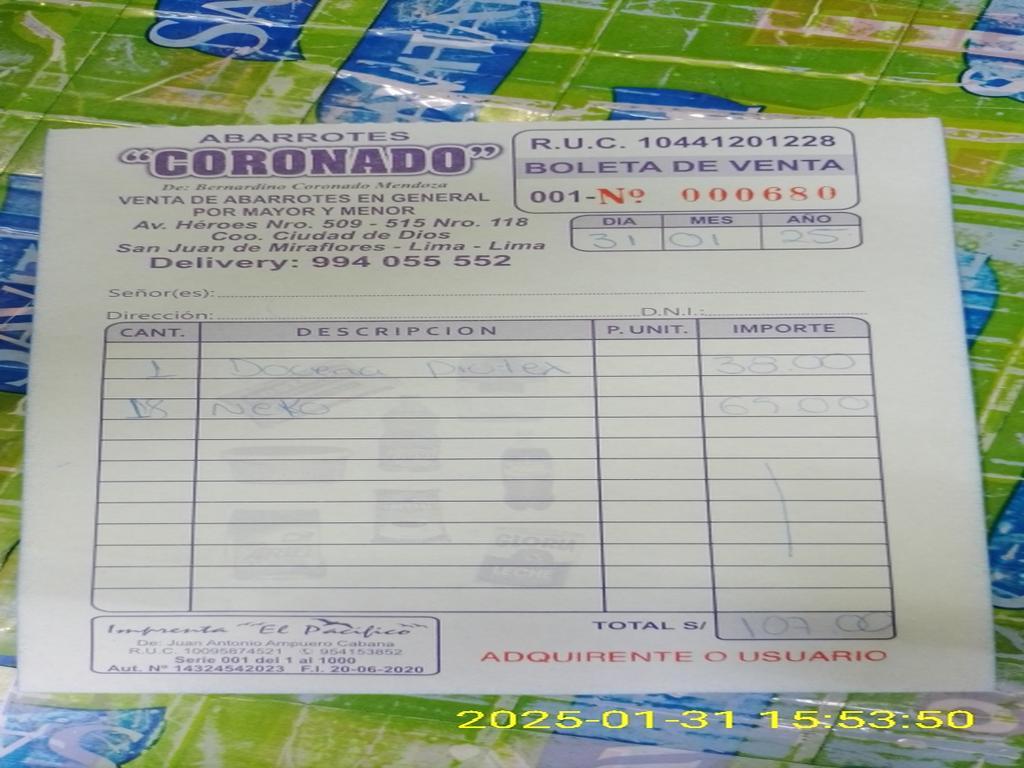 ABARROTES
"CORONADO"
De: Bernardino Coronado Mendoza
VENTA DE ABARROTES EN GENERAL
POR MAYOR Y MENOR
Av. Héroes Nro. 509 - 515 Nro. 118
Coo. Ciudad de Dios
San Juan de Miraflores - Lima - Lima
Delivery: 994 055 552
R.U.C. 10441201228
BOLETA DE VENTA
001-Nº 000680
DIA MES AÑO
31 01 25
Señor(es):
Dirección: D.N.I.:
CANT. DESCRIPCION P. UNIT. IMPORTE
1 Docena Protex 38.00
18 Neko
TOTAL S/ 107.00
Imprenta "El Pacífico"
De: Juan Antonio Ampuero Cabana
R.U.C. 10095874521 954153852
Serie 001 del 1 al 1000
Aut. Nº 14324542023 F.I. 20-06-2020
ADQUIRENTE O USUARIO
GLORIA
LECHE
2025-01-31 15:53:50